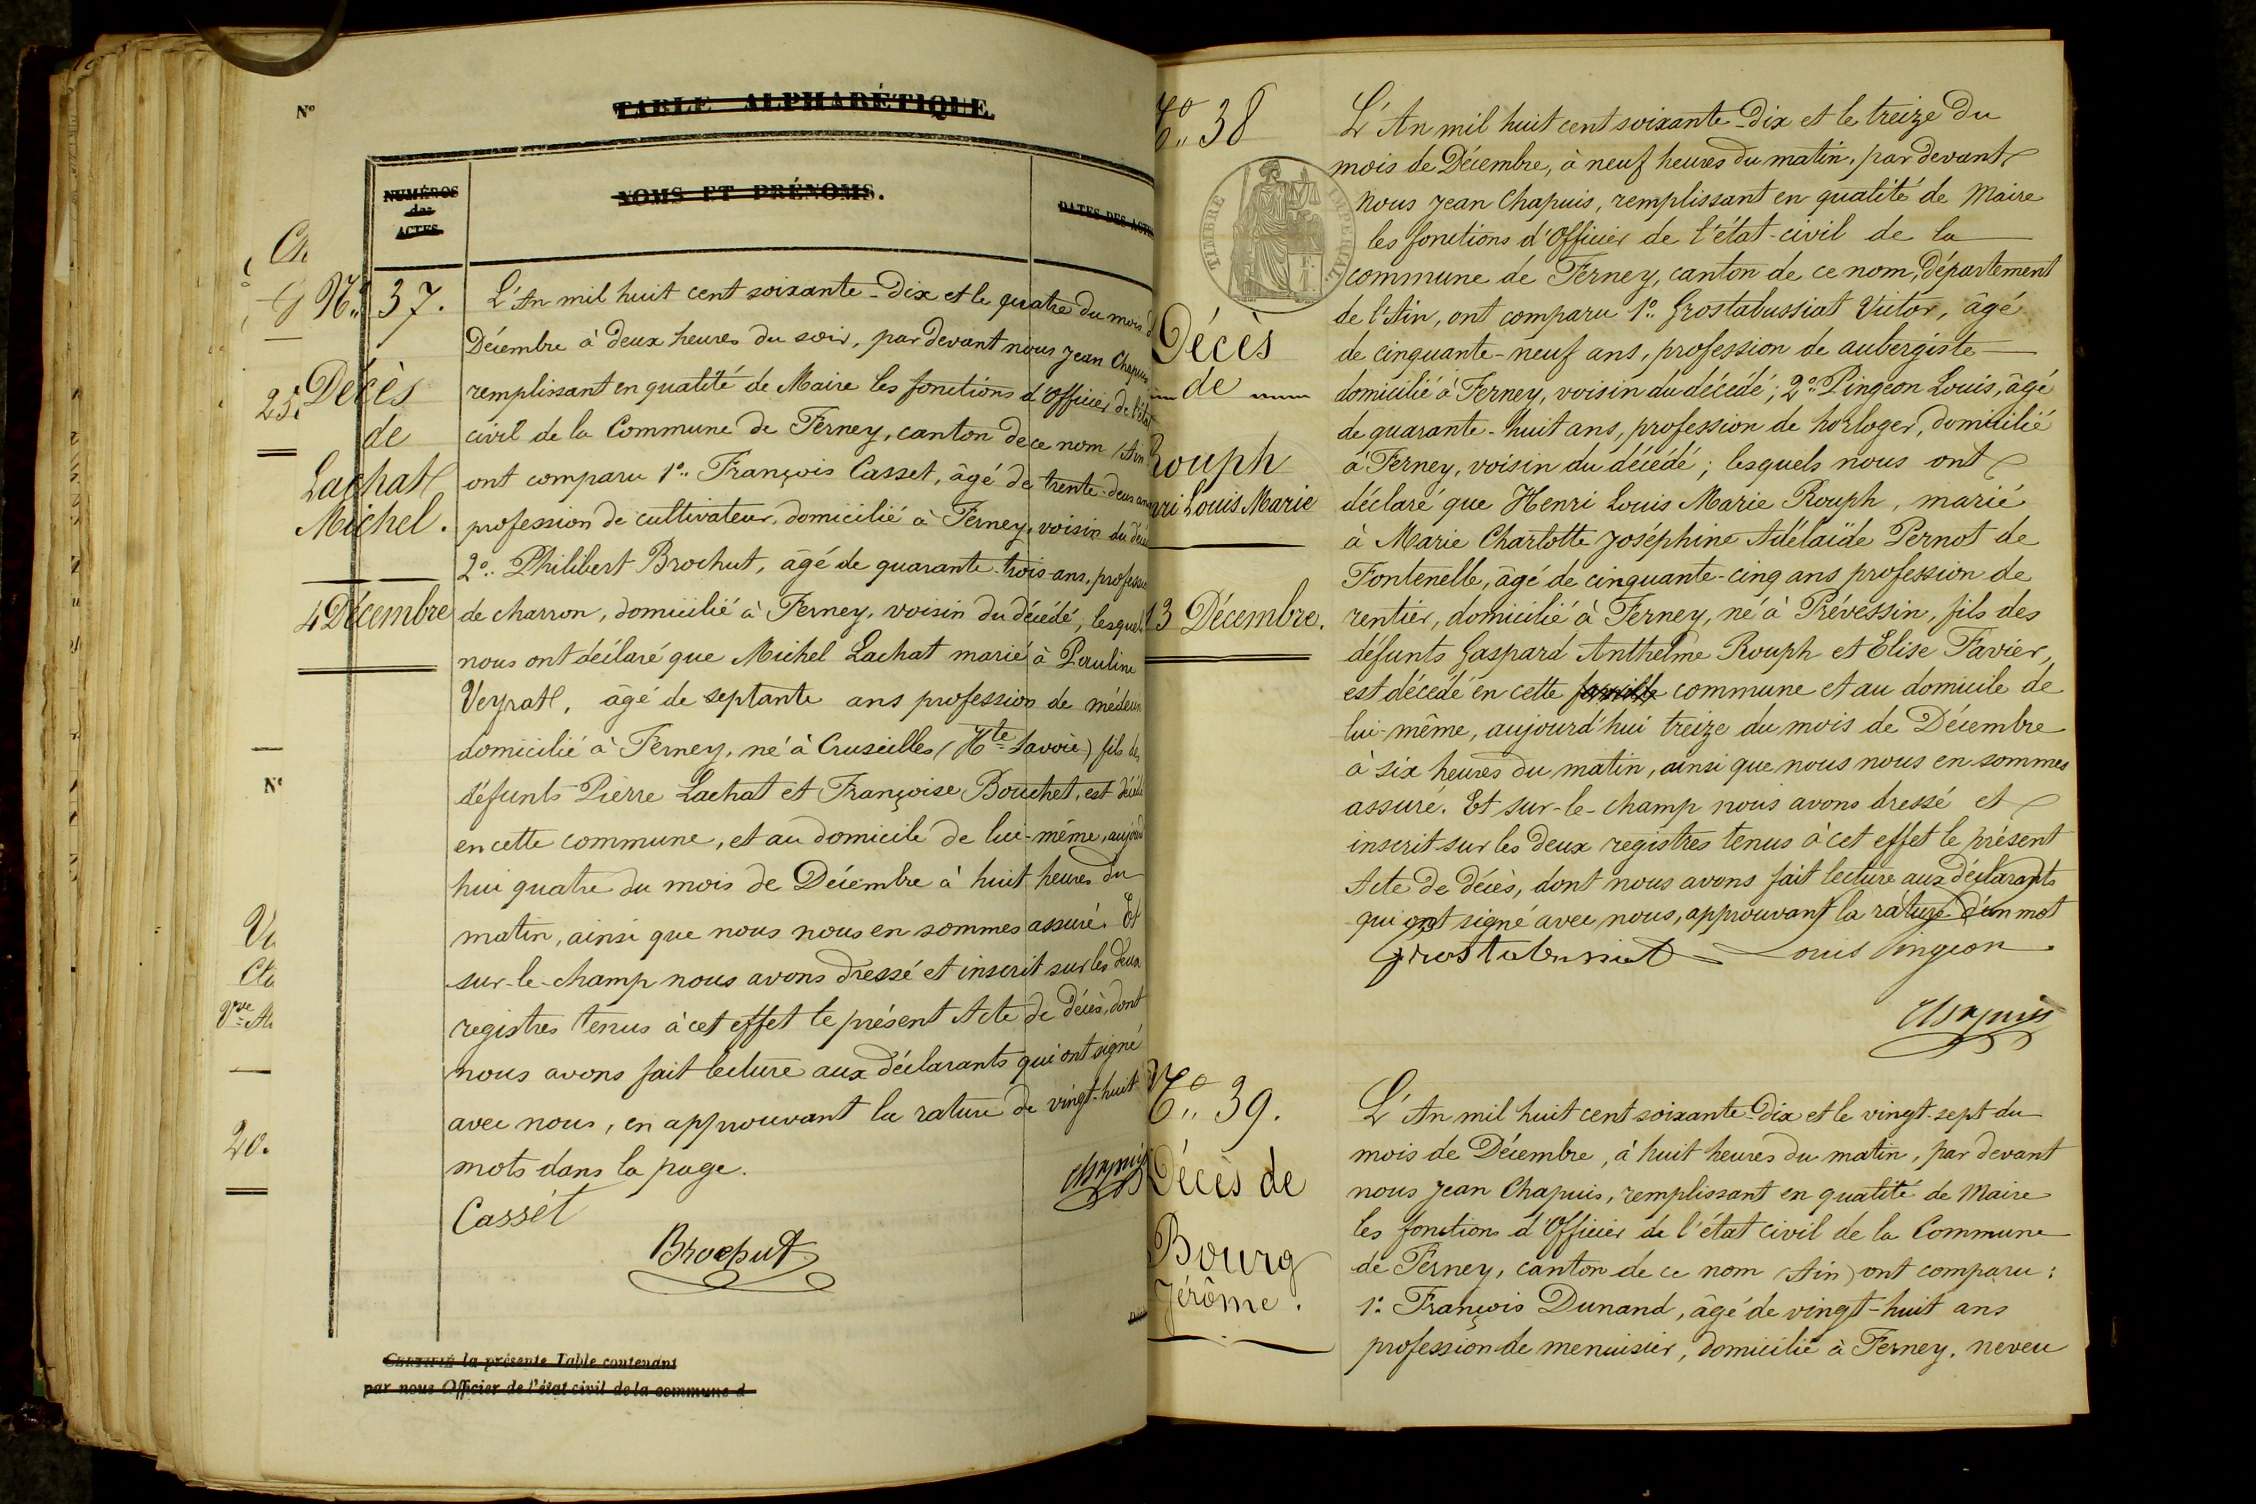 N°
TABLE ALPHABÉTIQUE.
NUMÉROS
des
ACTES.
NOMS ET PRÉNOMS.
DATES DES ACT
N° 37.
Décès
de
Lachat
Michel.
4 Décembre
L'An mil huit cent soixante-dix et le quatre du mois d
Décembre à deux heures du soir, par devant nous Jean Chapuis
remplissant en qualité de Maire les fonctions d'Officier de l'état
civil de la Commune de Ferney, canton de ce nom (Ain
ont comparu 1°. François Casset, âgé de trente-deux ans
profession de cultivateur, domicilié à Ferney, voisin du décé
2°. Philibert Brochut, âgé de quarante-trois ans, profession
de charron, domicilié à Ferney, voisin du décédé, lesquels
nous ont déclaré que Michel Lachat marié à Pauline
Veyrat, âgé de septante ans profession de médecin
domicilié à Ferney, né à Cruseilles (Hte Savoie) fils des
défunts Pierre Lachat et Françoise Bouchet, est décédé
en cette commune, et au domicile de lui-même, aujourd
hui quatre du mois de Décembre à huit heures du
matin, ainsi que nous nous en sommes assuré. Et
sur-le-champ nous avons dressé et inscrit sur les deux
registres tenus à cet effet le présent Acte de décès, dont
nous avons fait lecture aux déclarants qui ont signé
avec nous, en approuvant la rature de vingt-huit
mots dans la page.
Chapuis
Casset
Brochut
CERTIFIÉ la présente Table contenant
par nous Officier de l'état civil de la commune d
25.
N°
20.
N° 38
TIMBRE IMPÉRIAL
Décès
de
Rouph
nri Louis Marie
13 Décembre.
L'An mil huit cent soixante-dix et le treize du
mois de Décembre, à neuf heures du matin, par devant
nous Jean Chapuis, remplissant en qualité de Maire
les fonctions d'Officier de l'état-civil de la
commune de Ferney, canton de ce nom, département
de l'Ain, ont comparu 1°. Grostabussiat Victor, âgé
de cinquante-neuf ans, profession de aubergiste
domicilié à Ferney, voisin du décédé; 2°. Pingeon Louis, âgé
de quarante-huit ans, profession de horloger, domicilié
à Ferney, voisin du décédé; lesquels nous ont
déclaré que Henri Louis Marie Rouph, marié
à Marie Charlotte Joséphine Adélaïde Pernot de
Fontenelle, âgé de cinquante-cinq ans profession de
rentier, domicilié à Ferney, né à Prévessin, fils des
défunts Gaspard Anthelme Rouph et Elise Favier,
est décédé en cette famille commune et au domicile de
lui-même, aujourd'hui treize du mois de Décembre
à six heures du matin, ainsi que nous nous en sommes
assuré. Et sur-le-champ nous avons dressé et
inscrit sur les deux registres tenus à cet effet le présent
Acte de décès, dont nous avons fait lecture aux déclarants
qui ont signé avec nous, approuvant la rature d'un mot
Grostabussiat Louis Pingeon
Chapuis
N° 39.
Décès de
Bourg
Jérôme.
L'An mil huit cent soixante-dix et le vingt-sept du
mois de Décembre, à huit heures du matin, par devant
nous Jean Chapuis, remplissant en qualité de Maire
les fonctions d'Officier de l'état civil de la Commune
de Ferney, canton de ce nom (Ain) ont comparu:
1°. François Dunand, âgé de vingt-huit ans
profession de menuisier, domicilié à Ferney, neveu